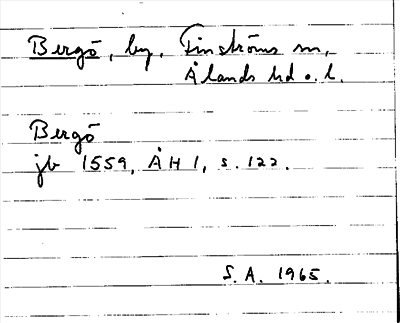 Bergö, by, Finströms sn,
Ålands hd o. l.
Bergö
jb 1559, ÅH 1, s. 122.
S.A. 1965.